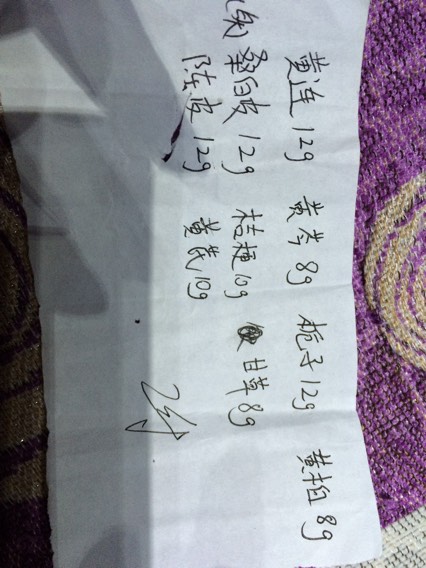 黄连12g 黄芩8g 栀子12g 黄柏8g
(炙)桑白皮12g 桔梗10g 甘草8g
陈皮12g 黄芪10g